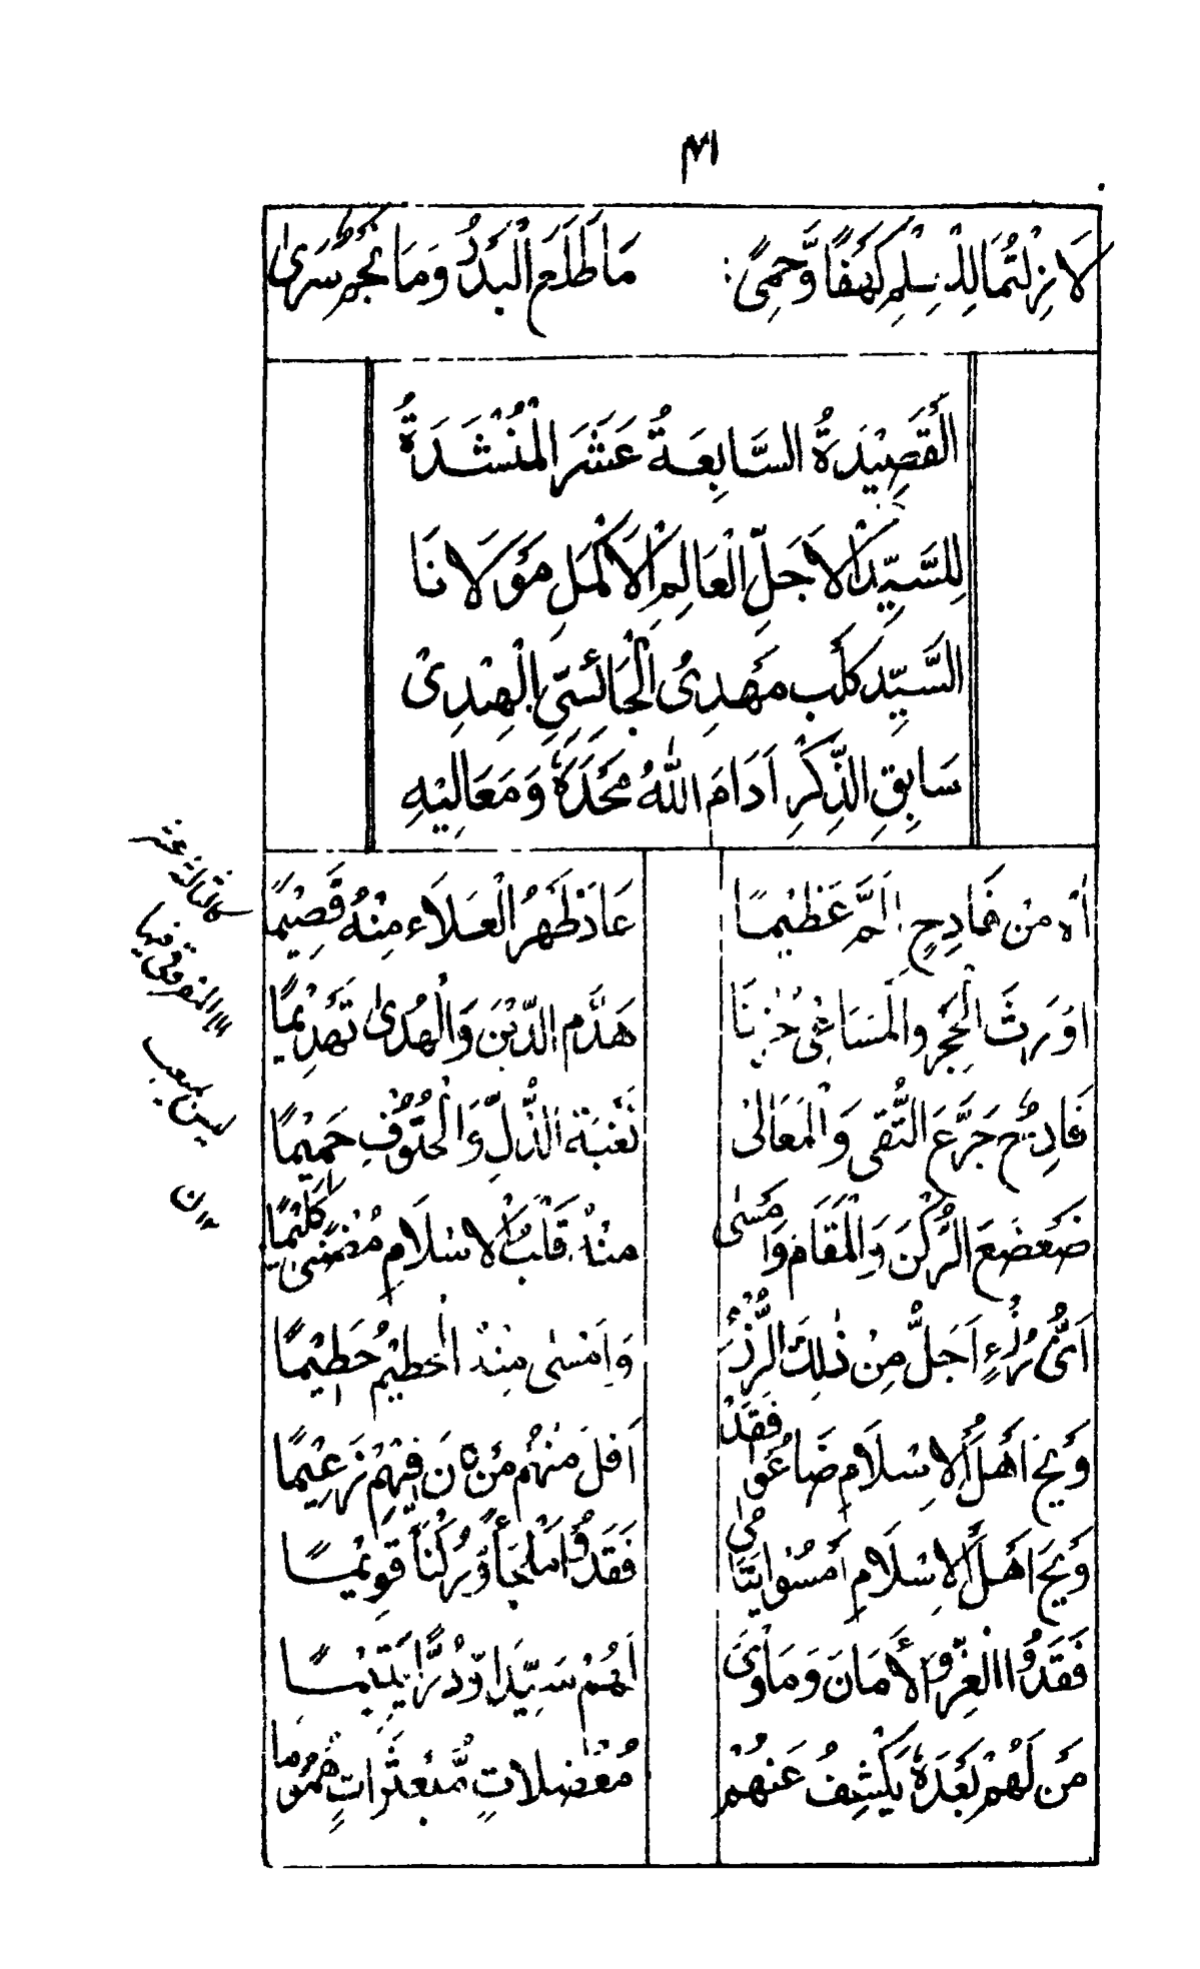 ۴۱
لَا زِلْتُمَا لِلدِّيْنِ كَهْفًا وَّحِمًى : مَا طَلَعَ الْبَدْرُ وَمَا نَجْمٌ سَرٰى
الْقَصِيْدَةُ السَّابِعَةُ عَشَرَ الْمُنْشَدَةُ
لِلسَّيِّدِ الْاَجَلِّ الْعَالِمِ الْاَكْمَلِ مَوْلَانَا
السَّيِّد كَلْب مَهْدِى الْجَائِسِيّ الْهِنْدِىْ
سَابِقِ الذِّكْرِ اَدَامَ اللهُ مَجْدَهٗ وَمَعَالِيْهِ
اٰه مِنْ فَادِحٍ اَلَمَّ عَظِيْمًا عَادَ ظَهْرُ الْعَلَاءِ مِنْهُ قَصِيْمًا
اَوْرَثَ الْحِجْرَ وَالْمَسَاعِىْ حُزْنًا هَدَّمَ الدِّيْنَ وَالْهُدٰى تَهْدِيْمًا
فَادِحٌ جَرَّعَ التُّقٰى وَالْمَعَالىٰ نَغْبَةَ الذُّلِّ وَالْحُتُوْفِ حَمِيْمًا
ضَعْضَعَ الرُّكْنَ وَالْمَقَامَ وَاَمْسٰى مِنْهُ قَلْبُ الْاِسْلَامِ مُضْنًى كَلِيْمًا
اَىُّ رُزْءٍ اَجَلُّ مِنْ ذٰلِكَ الرُّزْءِ وَاَمْسٰى مِنْهُ الْحَطِيْمُ حَطِيْمًا
وَيْحَ اَهْلِ الْاِسْلَامِ ضَاعُوْا فَقَدْ اَفَلَ مِنْهُمْ مَنْ كَانَ فِيْهِمْ زَعِيْمًا
وَيْحَ اَهْلِ الْاِسْلَامِ اَمْسَوْا يَتَامٰى فَقَدُوْا مَلْجَأً وَّرُكْنًا قَوِيْمًا
فَقَدُوا الْعِزَّ وَالْاَمَانَ وَمَاْوًى لَهُمْ سَيِّدًا وَّدُرًّا يَّتِيْمًا
مَنْ لَهُمْ بَعْدَهٗ يَكْشِفُ عَنْهُمْ مُعْضَلَاتٍ مُّبَعْثَرَاتٍ هُمُوْمًا